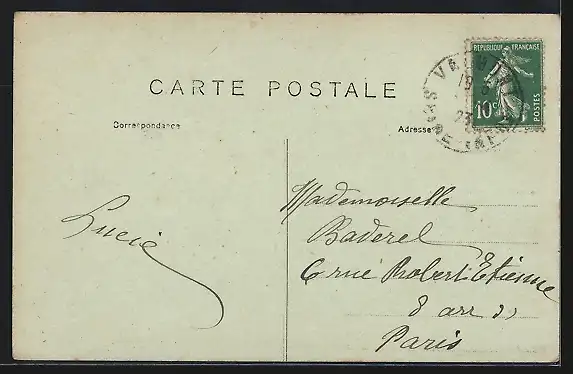 CARTE POSTALE
Correspondance
Adresse
RÉPUBLIQUE FRANÇAISE
10c
POSTES
Lucie
Mademoiselle
Baderel
6 rue Robert Etienne
8 arr
Paris